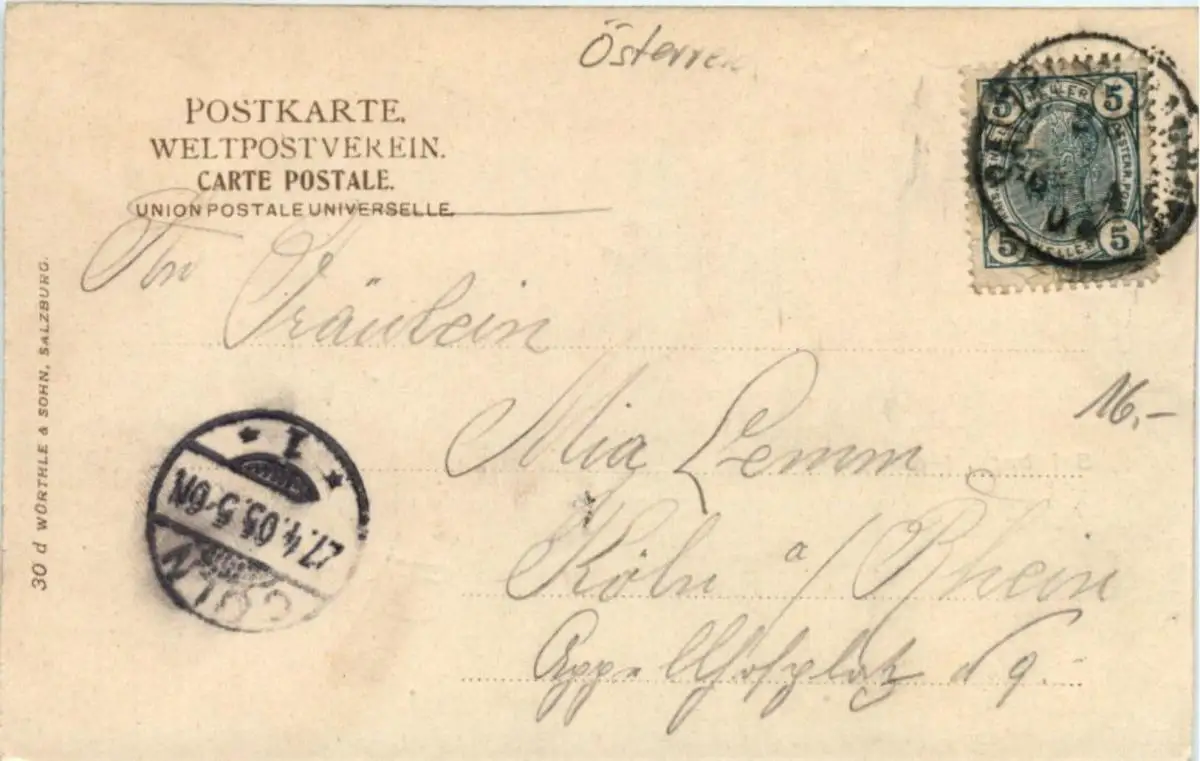 Österrei
POSTKARTE.
WELTPOSTVEREIN.
CARTE POSTALE.
UNION POSTALE UNIVERSELLE.
5 HELLER 5
5 HELLER 5
An
Fräulein
Mia Lemm
16,-
Köln a/Rhein
Appellhofplatz 9.
30 d WÜRTHLE & SOHN, SALZBURG.
* 1 *
27.4.05.5-6N
CÖLN